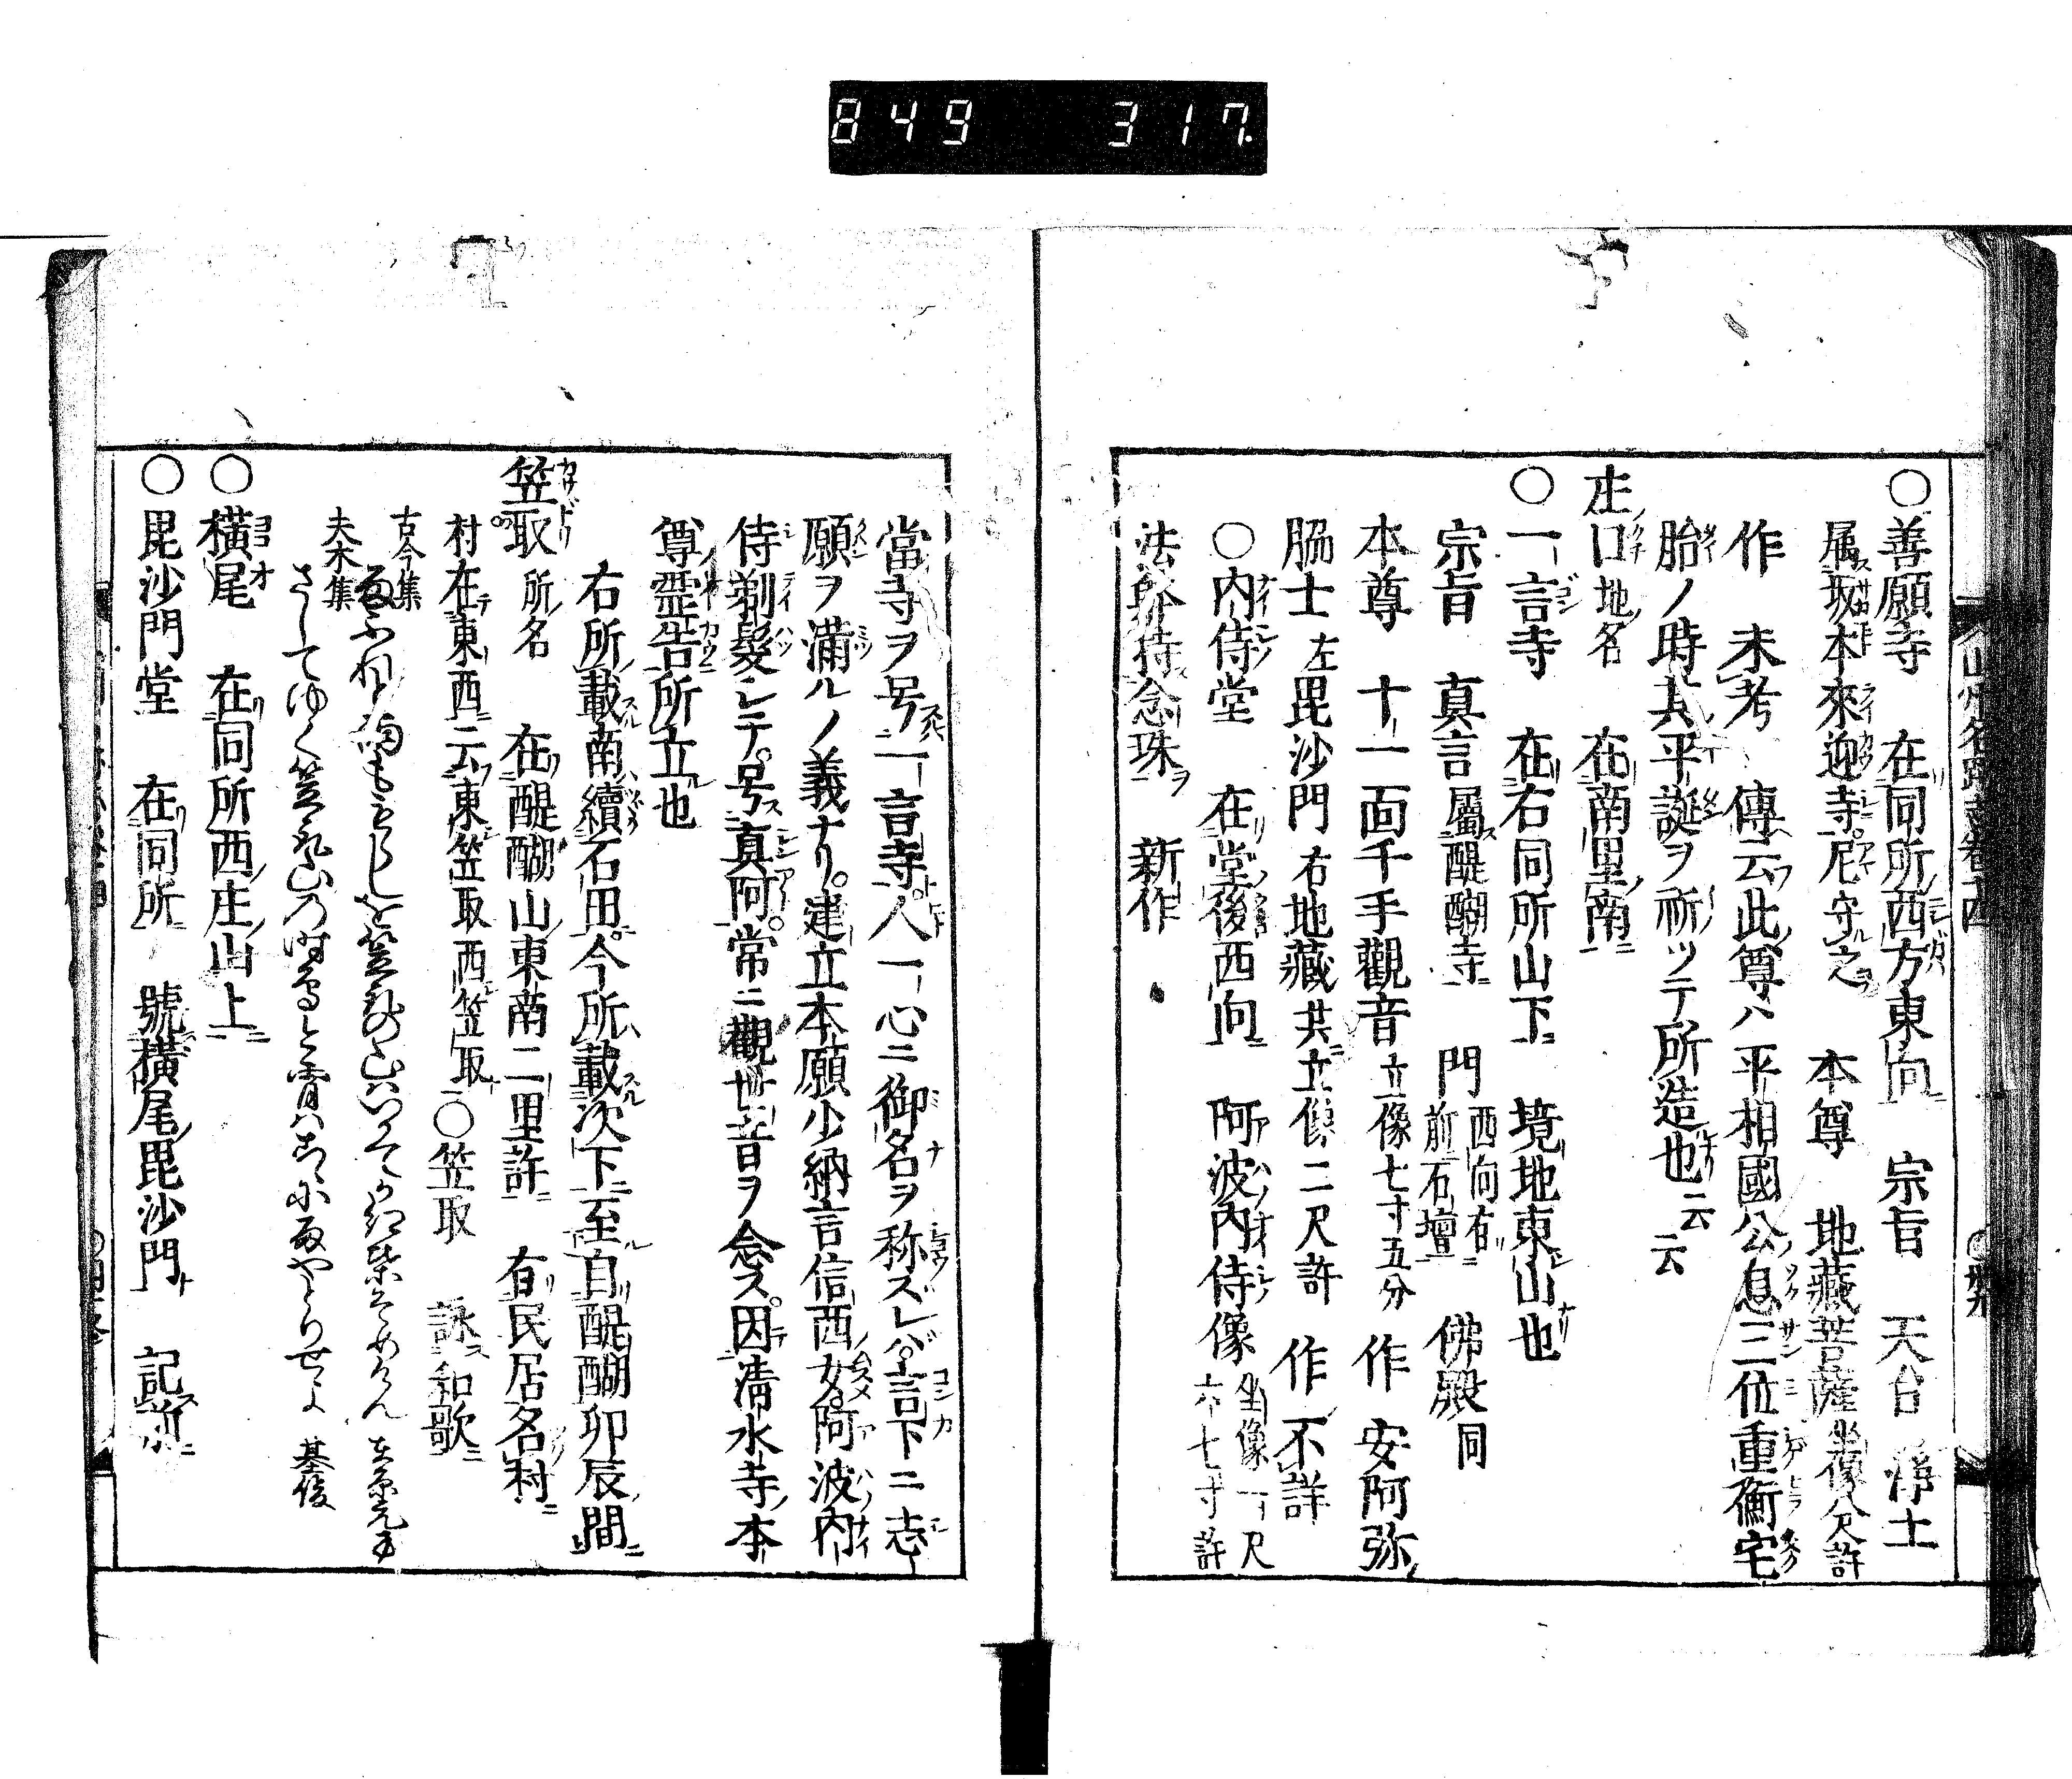 849 317.
○善願寺 在同所西方東向 宗旨 天台 浄土
属坂本來迎寺尼守之 本尊 地蔵菩薩坐像八尺許
作 未考 傳云此尊ハ平相國公息三位重衡宅
胎ノ時其平誕ヲ祈ッテ所造也云云
庄口地名 在南里南
○一言寺 在右同所山下 境地東山也
宗旨 真言属醍醐寺 門西向有前石壇 佛殿同
本尊 十一面千手觀音立像七寸五分 作 安阿弥
脇士左毘沙門右地蔵共立像二尺許 作不詳
○内侍堂 在堂後西向 阿波内侍像坐像一尺六七寸許
法躰持念珠 新作
當寺ヲ号一言寺人一心ニ御名ヲ称スレバ言下ニ志
願ヲ満ルノ義ナリ建立本願少納言信西女阿波内
侍剃髪シテ号真阿常ニ觀世音ヲ念ス因清水寺本
尊霊告所立也
右所載南續石田今所載次下至自醍醐卯辰間
笠取所名 在醍醐山東南二里許 有民居名村
村在東西云東笠取西笠取○笠取 詠和歌
古今集
雨ふれと露ももらしを笠取の山はいかてか紅葉そめけん 在原元方
夫木集
さしてゆく笠取山の 基俊
○横尾 在同所西庄山上
○毘沙門堂 在同所 號横尾毘沙門 記